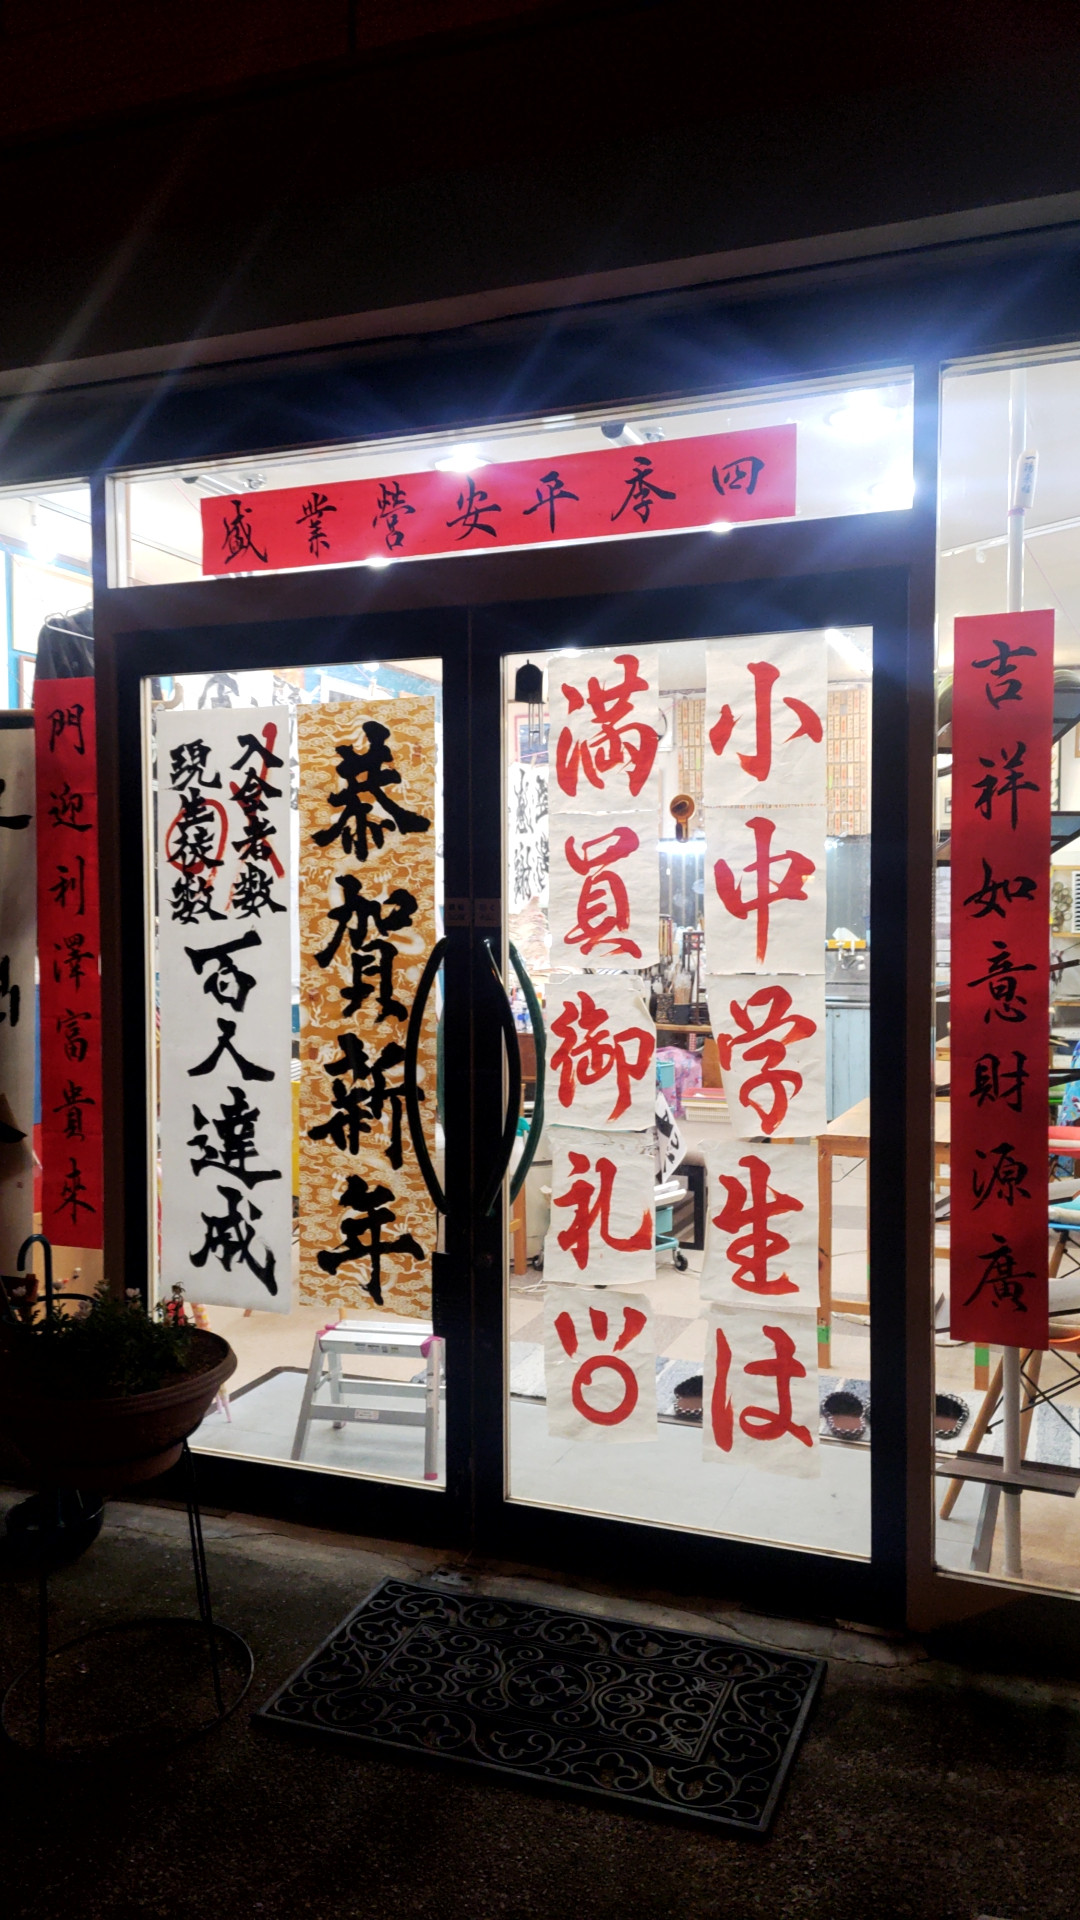 四季平安營業盛
吉祥如意財源廣
門迎利澤富貴來
小中学生は
満員御礼
恭賀新年
入会者数
現生徒数
百人達成